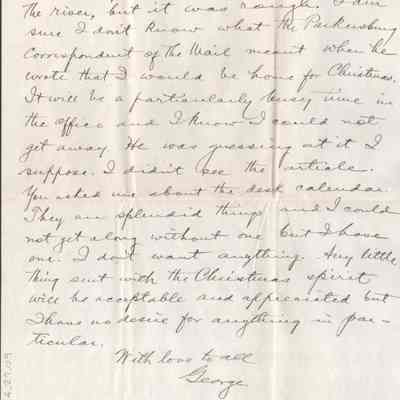 the river, but it was rough. I am
sure I don't know what the Parkersburg
Correspondent of the Mail meant when he
wrote that I would be home for Christmas.
It will be a particularly busy time in
the office and I know I could not
get away. He was guessing at it I
suppose. I didn't see the article.
You asked me about the desk calendar.
They are splendid things and I could
not get along without one but I have
one. I don't want anything. Any little
thing sent with the Christmas spirit
will be acceptable and appreciated but
I have no desire for anything in par-
ticular.
With love to all
George